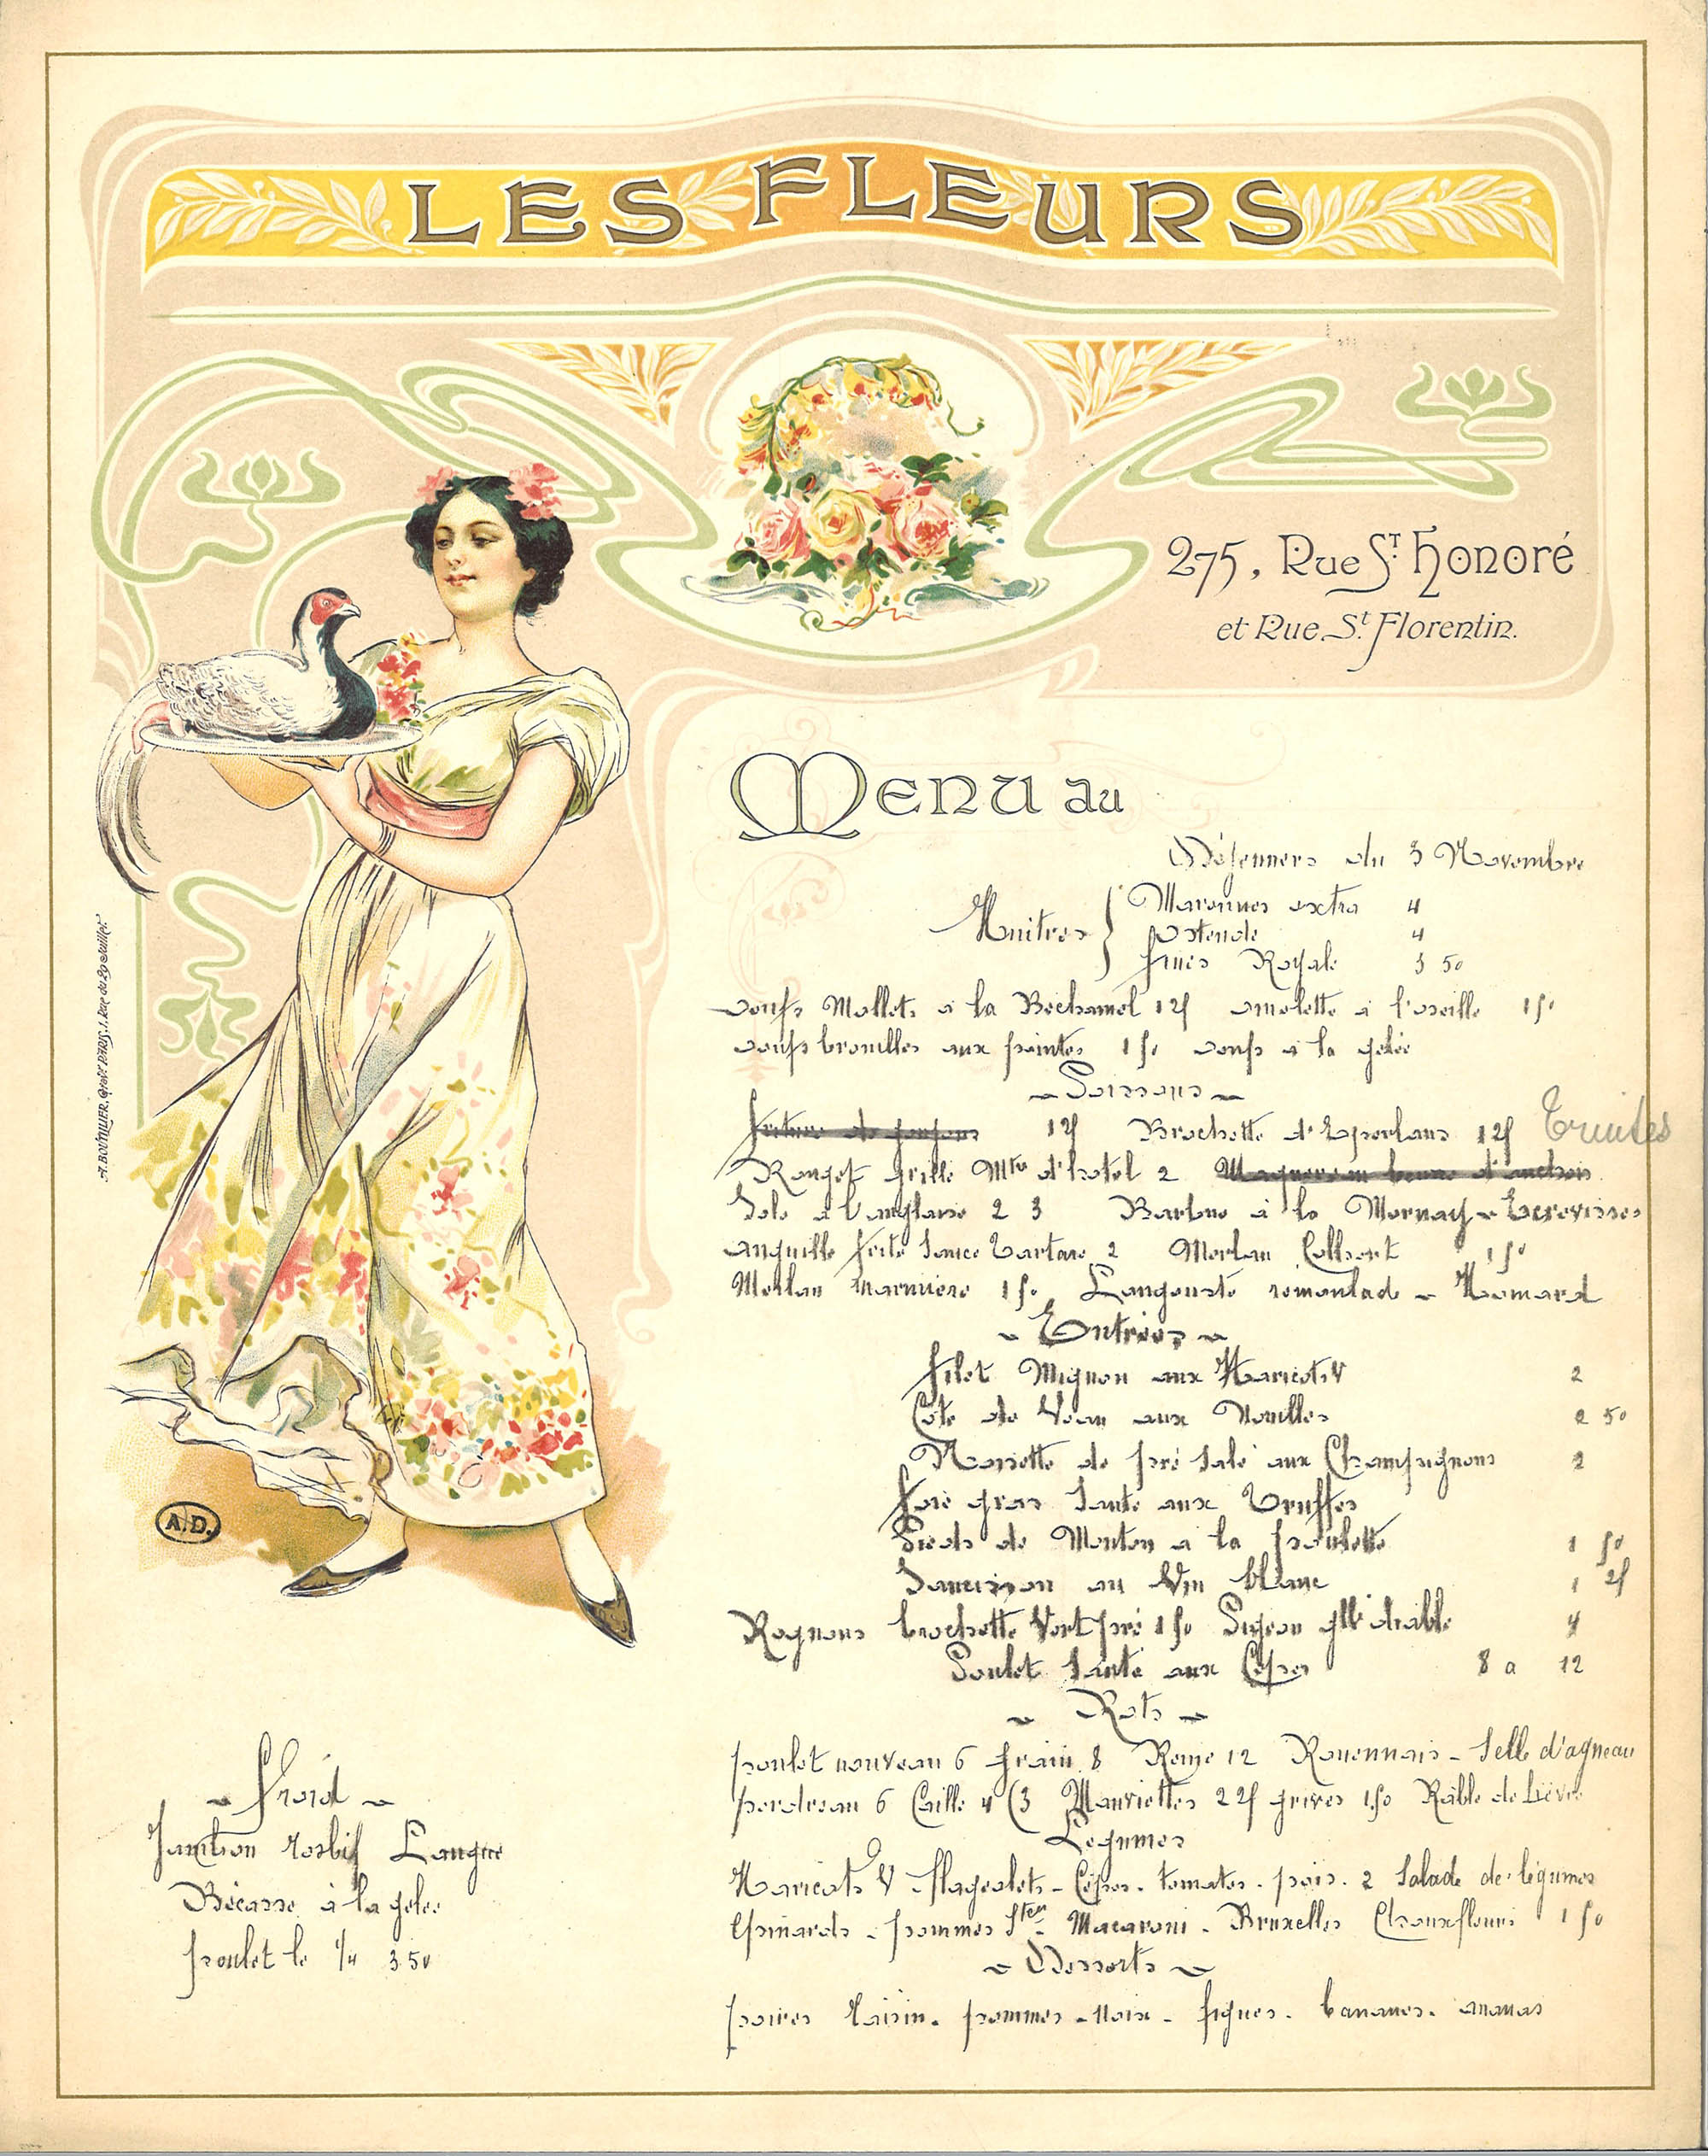 LES FLEURS
275, Rue St. Honoré
et Rue St. Florentin.
Menu au
Déjeuners du 3 Novembre
Huitres
Marennes extra 4
Ostende 4
fines Royale 3 50
oeufs Mollets a la Béchamel 1 25 omelette a l'oseille 1 50
oeufs brouilles aux pointes 1 50 oeufs a la gelée
Poissons
friture de goujons 1 25 Brochette d'Eperlans 1 25 Truites
Rouget grillé Mtre d'hotel 2 Maquereau beurre d'anchois
Sole a l'anglaise 2 3 Barbue à la Mornay - Ecrevisses
anguille frite sauce Tartare 2 Merlan Colbert 1 50
Merlan marniere 1 50 Langouste remoulade - Homard
Entrées
filet Mignon aux Haricots V 2
Cote de Veau aux Nouilles 2 50
Noisette de pré salé aux Champignons 2
foie gras sauté aux Truffes
Pieds de Mouton a la poulette 1 50
Saucisson au Vin blanc 1 25
Rognons brochette Vert pré 1 50 Pigeon gllé diable 4
Poulet sauté aux Cèpes 8 a 12
Rots
poulet nouveau 6 grain 8 Reine 12 Rouennais - Selle d'agneau
perdreau 6 Caille 4 (3 Mauviettes 2 25 grives 1.50 Râble de Lièvre
Légumes
Haricots V flageolets - Cèpes - tomates - pois - 2 Salade de légumes
Epinards - pommes Stées - Macaroni - Bruxelles Chouxfleurs 1 50
Desserts
poires raisin - pommes - noix - figues - bananes - ananas
froid
Jambon rosbif Langue
Bécasse à la gelée
poulet le 1/4 3.50
A.D.
A. BOUTILLIER, Gravr PARIS, 1, Rue du 29 Juillet